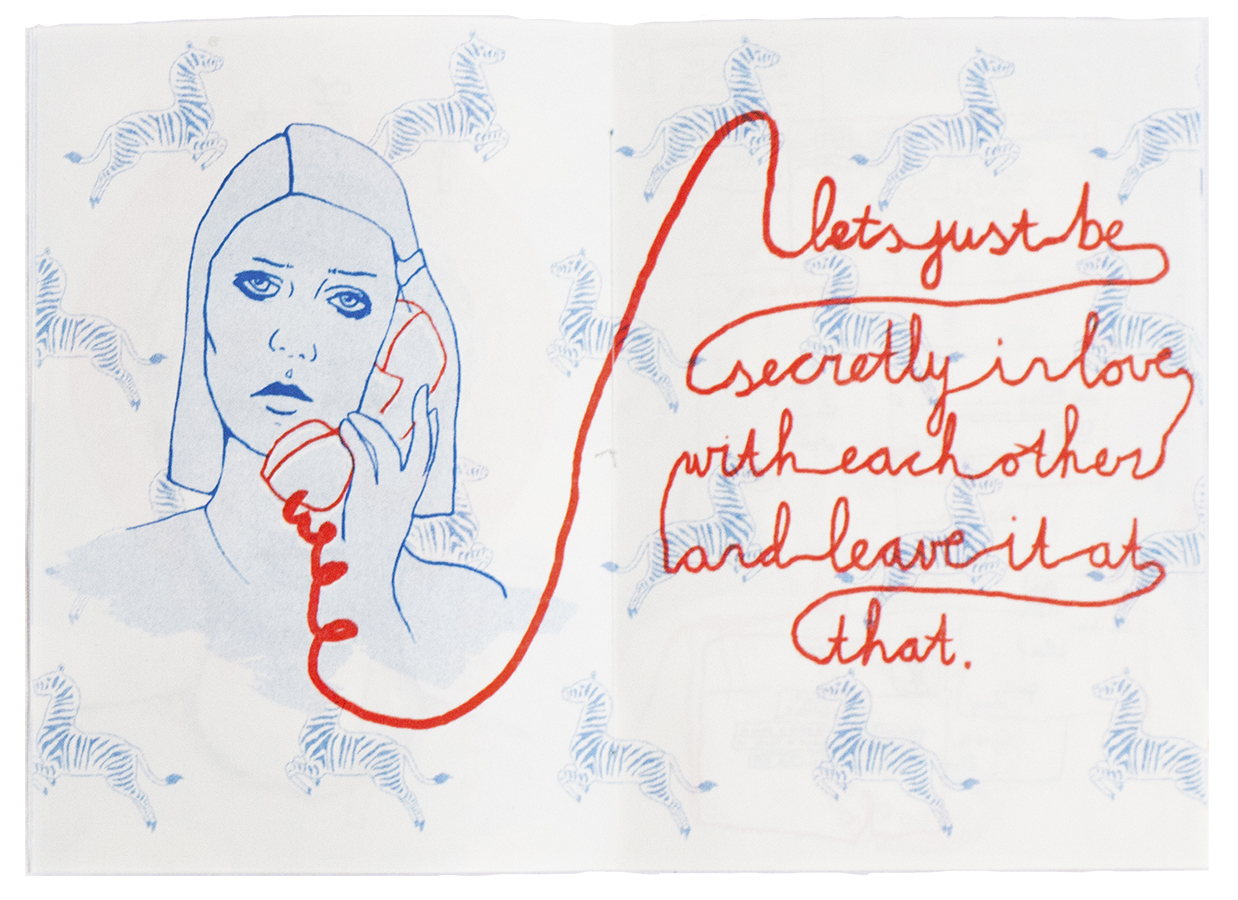 lets just be
secretly in love
with each other
and leave it at
that.